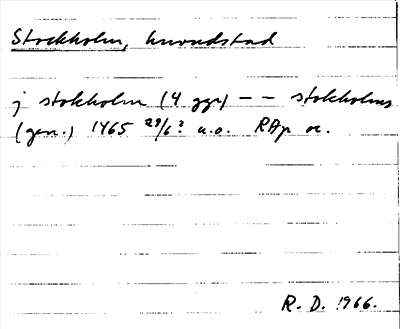 Stockholm, huvudstad
j stokholm (4 ggr) — — stokholms
(gen.) 1465 29/6? u.o. RAp or.
R. D. 1966.